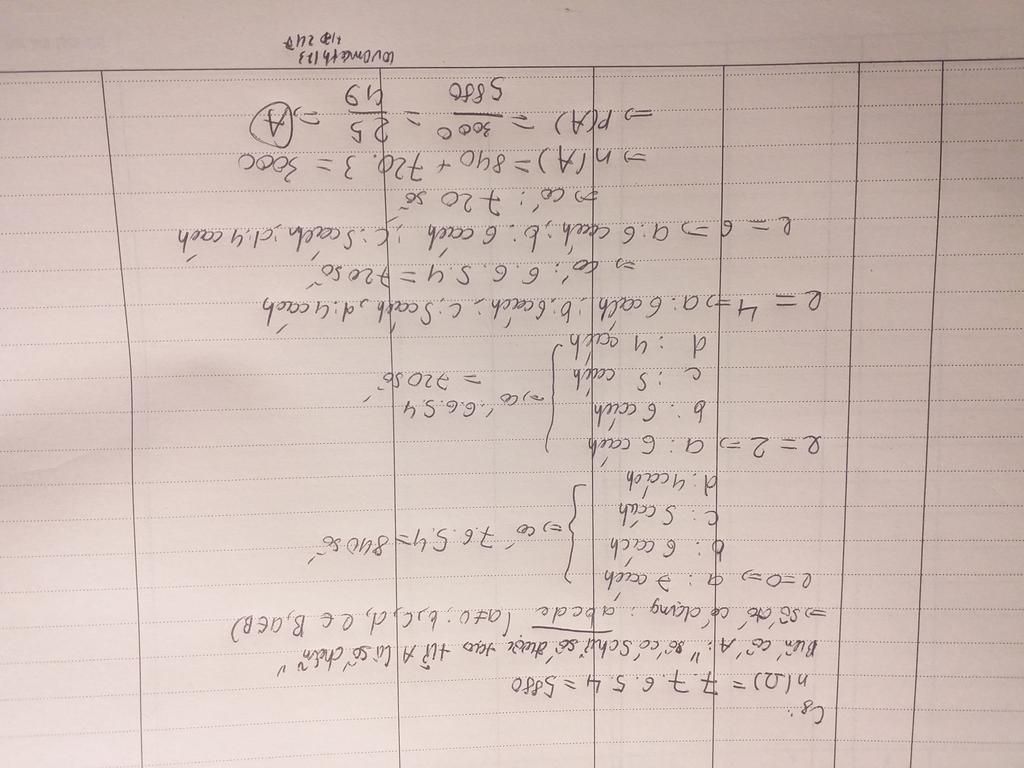 C8:
n(Ω) = 7.7.6.5.4 = 5880
Biến cố A: "số có 5 chữ số được tạo từ A là số chẵn"
⇒ số đó có dạng: abcde (a≠0; b,c,d,e ∈ B, a∈B)
e=0 ⇒ a: 7 cách
b: 6 cách
c: 5 cách
d: 4 cách
⇒ có 7.6.5.4 = 840 số
e = 2 ⇒ a: 6 cách
b: 6 cách
c: 5 cách
d: 4 cách
⇒ có: 6.6.5.4
= 720 số
e = 4 ⇒ a: 6 cách; b: 6 cách; c: 5 cách, d: 4 cách
⇒ có: 6.6.5.4 = 720 số
e = 6 ⇒ a: 6 cách; b: 6 cách; c: 5 cách; d: 4 cách
⇒ có: 720 số
⇒ n(A) = 840 + 720.3 = 3000
⇒ P(A) = 3000/5880 = 25/49 ⇒ A